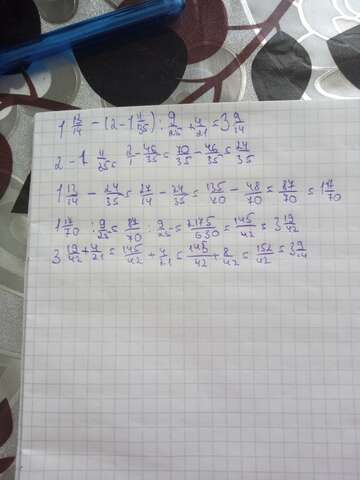 1 13/14 - (2 - 1 11/35) : 9/25 + 4/21 = 3 9/14
2 - 1 11/35 = 2/1 - 46/35 = 70/35 - 46/35 = 24/35
1 13/14 - 24/35 = 27/14 - 24/35 = 135/70 - 48/70 = 87/70 = 1 17/70
1 17/70 : 9/25 = 87/70 : 9/25 = 2175/630 = 145/42 = 3 19/42
3 19/42 + 4/21 = 145/42 + 4/21 = 145/42 + 8/42 = 153/42 = 3 9/14